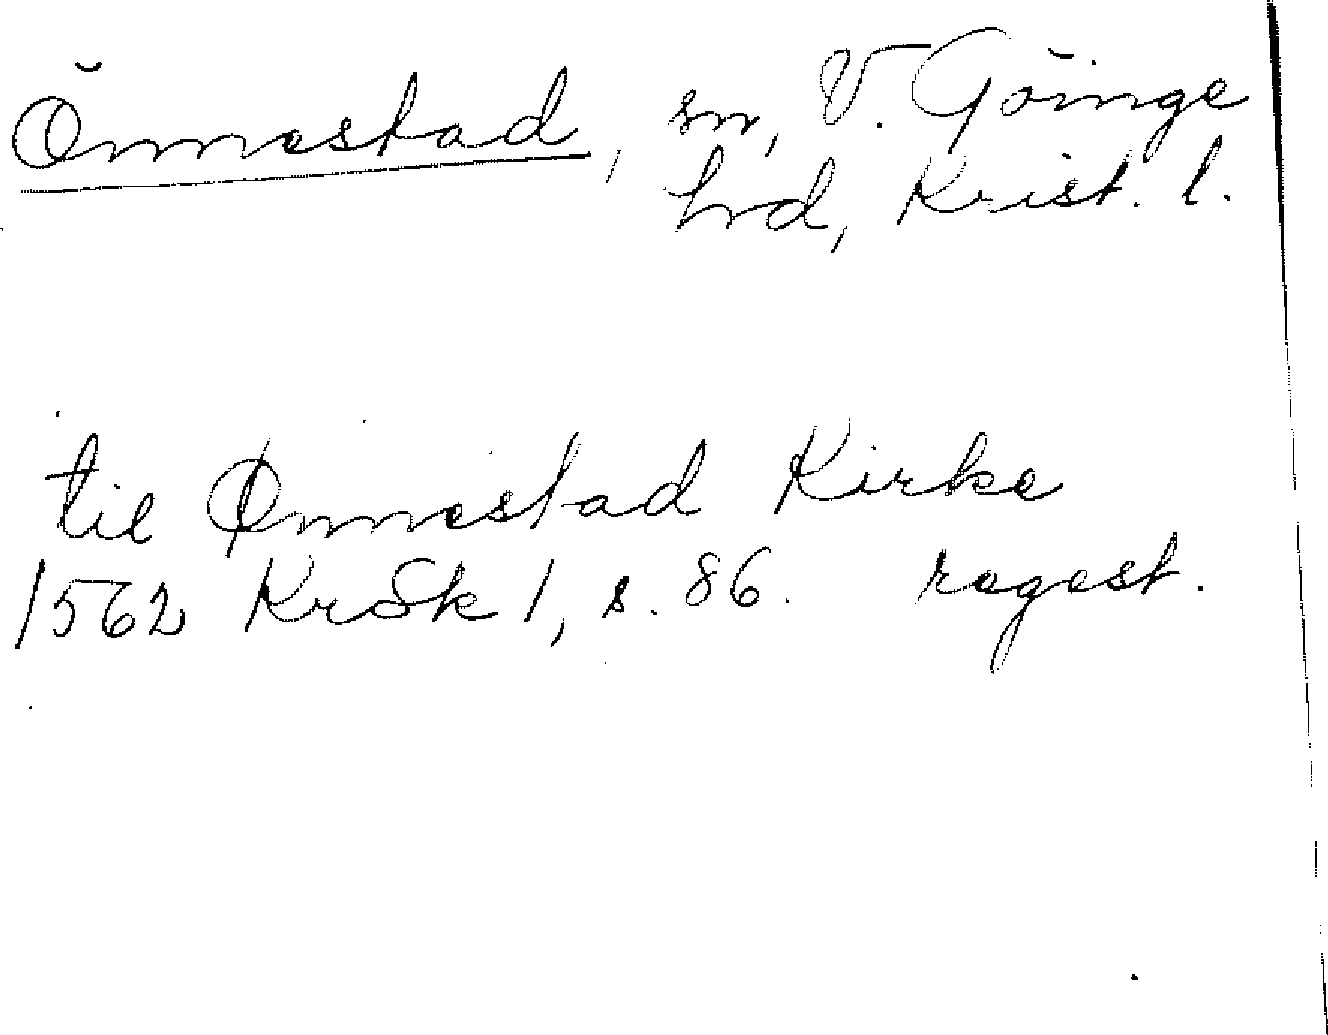 Önnestad, sn, V. Göinge
hrd, Krist. l.
til Ønnestad Kirke
1562 KrSk 1, s. 86. regest.